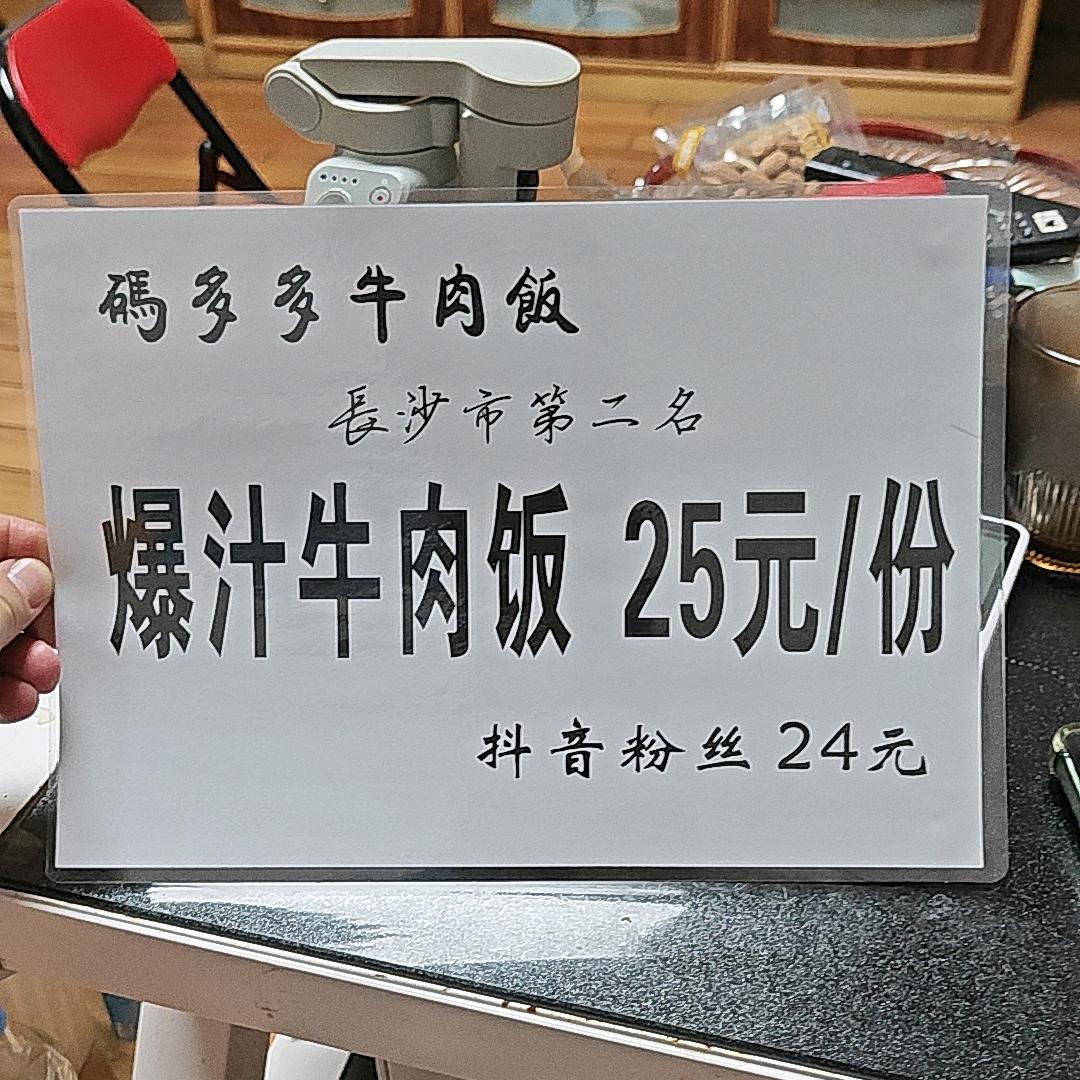 碼多多牛肉飯
長沙市第二名
爆汁牛肉饭 25元/份
抖音粉丝24元